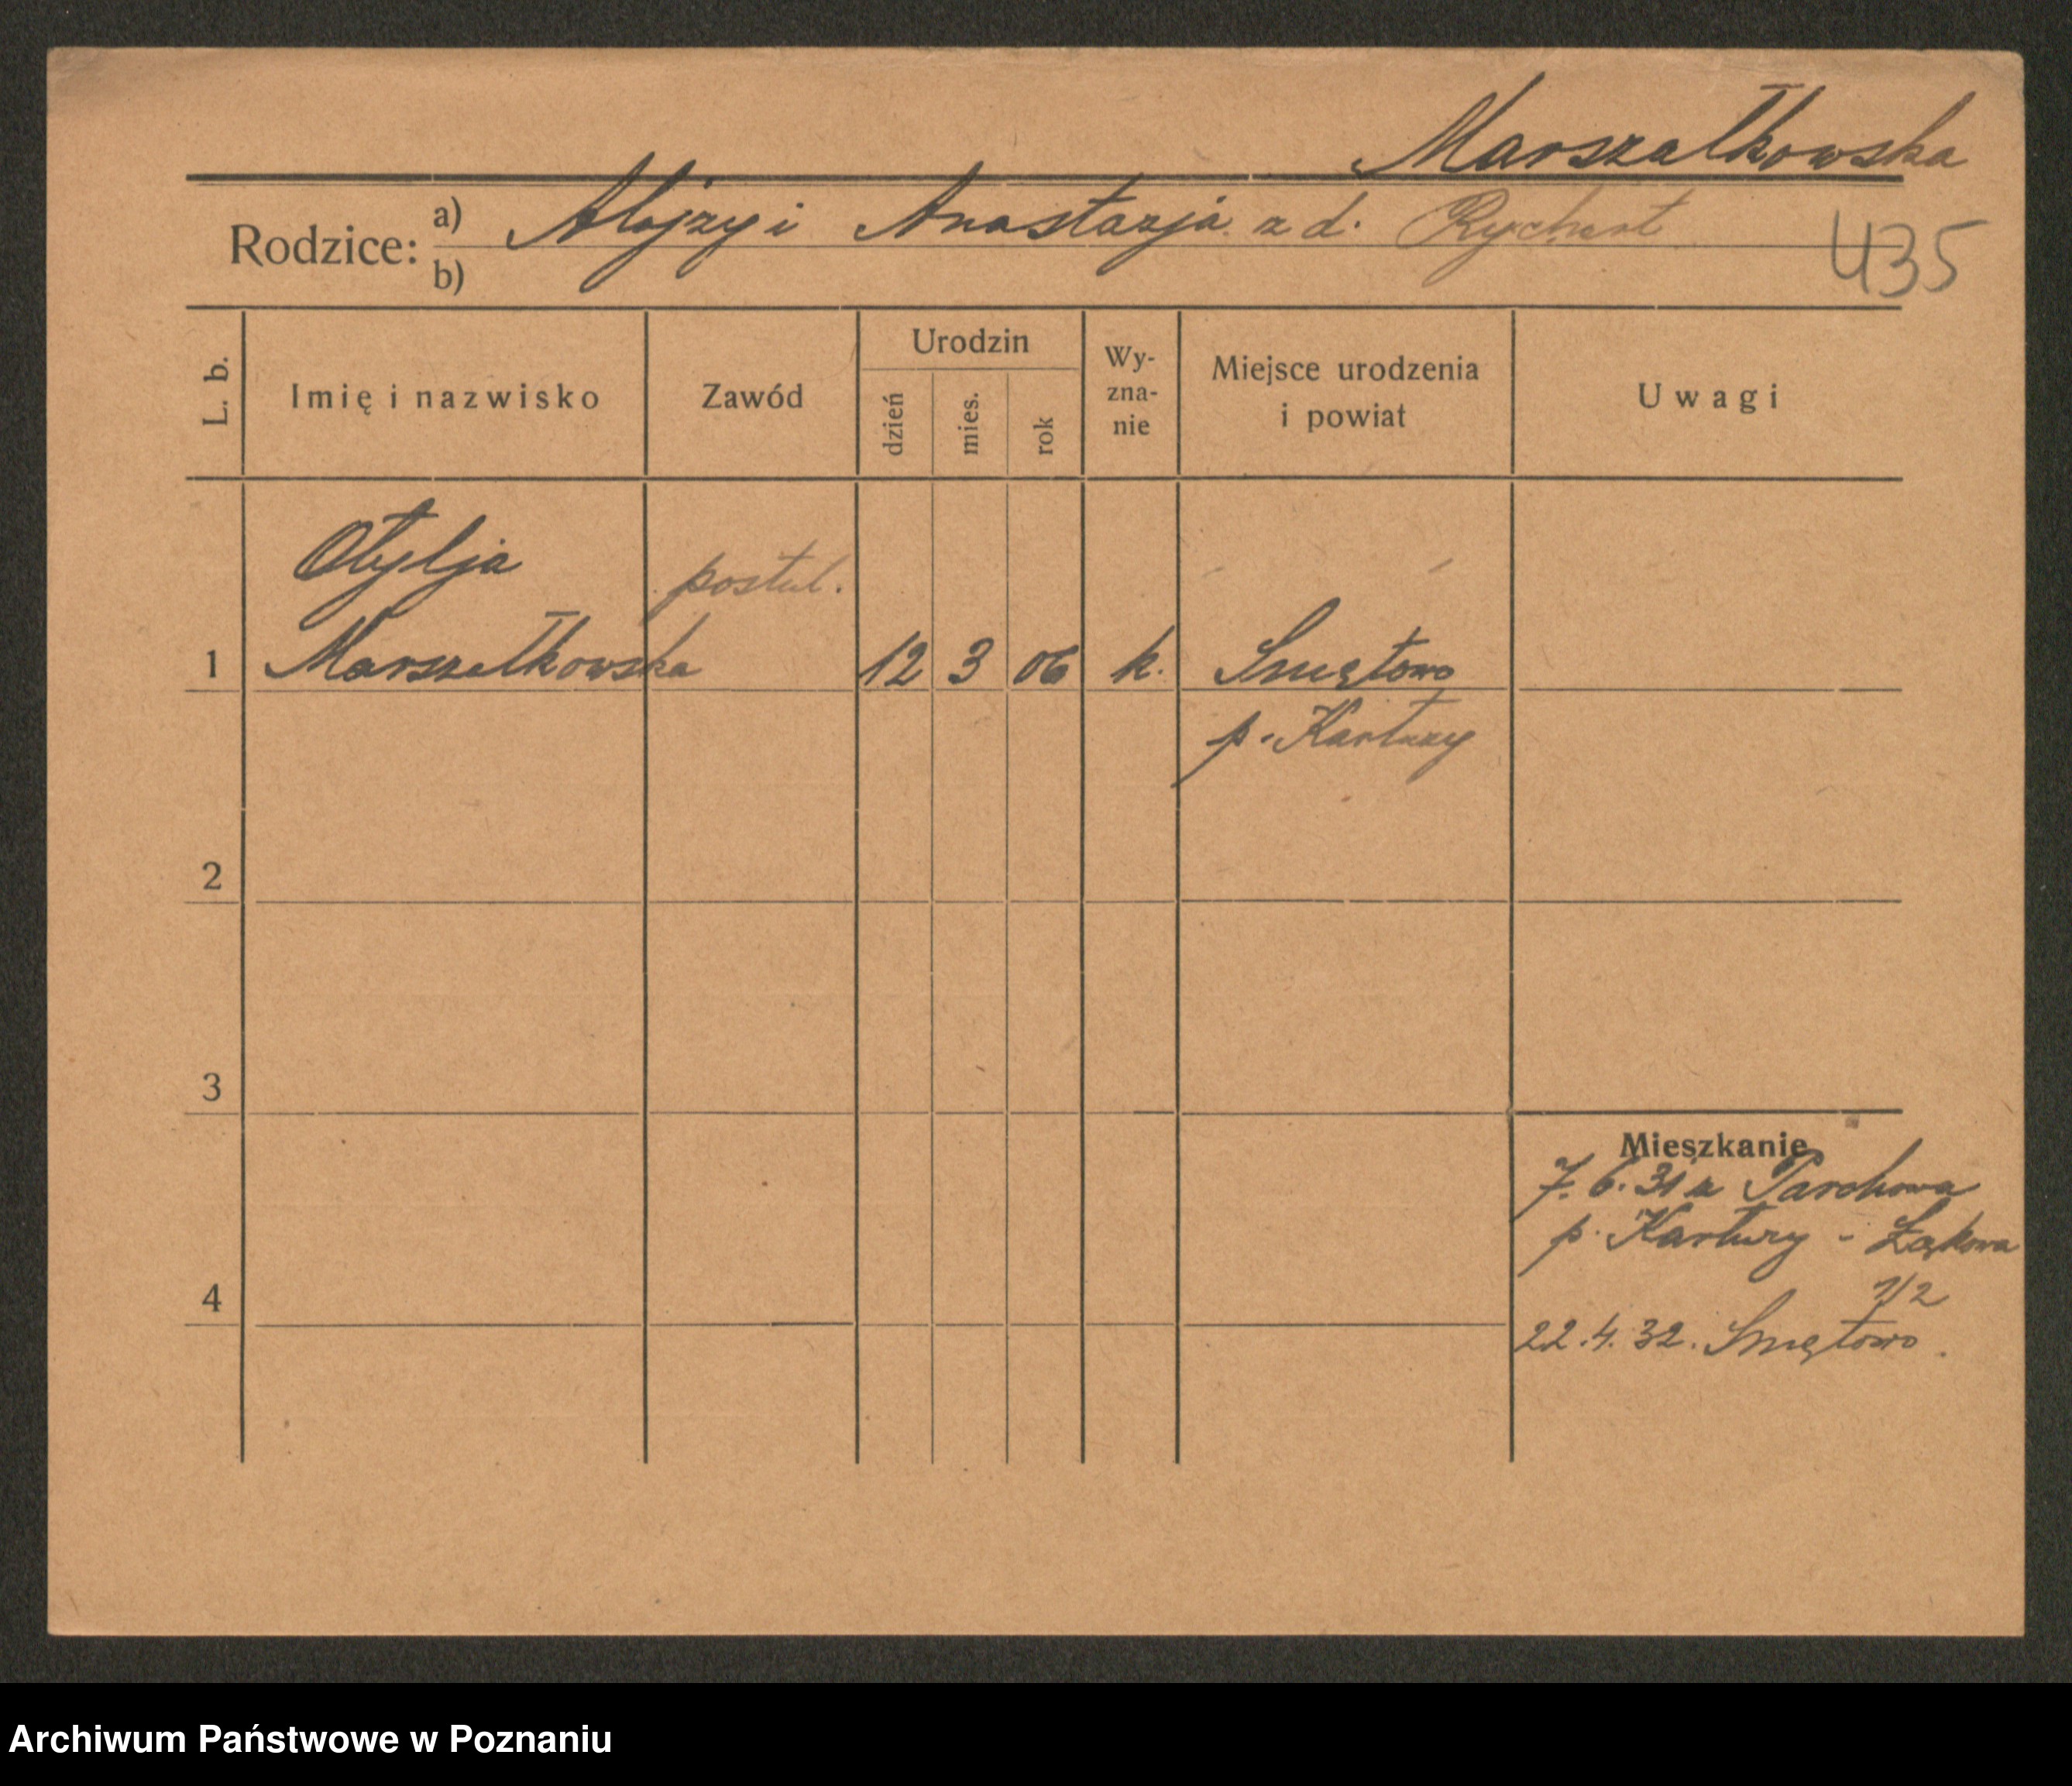 Marszałkowska
Rodzice: a) Alojzy i Anastazja z d. Rychert
b)
435
L. b.
Imię i nazwisko
Zawód
Urodzin
dzień
mies.
rok
Wy-
zna-
nie
Miejsce urodzenia
i powiat
Uwagi
Otylja
postul.
1 Marszałkowska 12 3 06 k. Smętowo
p. Kartuzy
2
3
Mieszkanie
7. 6. 31 z Parchowa
p. Kartuzy - Łąkowa
1/2
4
22.4.32. Smętowo.
Archiwum Państwowe w Poznaniu